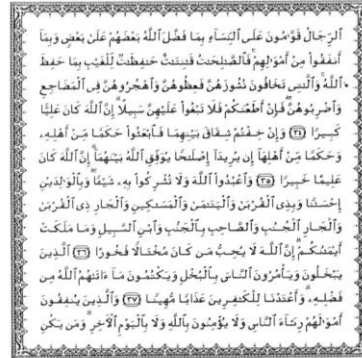 ٱلرِّجَالُ قَوَّٰمُونَ عَلَى ٱلنِّسَآءِ بِمَا فَضَّلَ ٱللَّهُ بَعْضَهُمْ عَلَىٰ بَعْضٍ وَبِمَآ
أَنفَقُوا۟ مِنْ أَمْوَٰلِهِمْ ۚ فَٱلصَّٰلِحَٰتُ قَٰنِتَٰتٌ حَٰفِظَٰتٌ لِّلْغَيْبِ بِمَا حَفِظَ
ٱللَّهُ ۚ وَٱلَّٰتِى تَخَافُونَ نُشُوزَهُنَّ فَعِظُوهُنَّ وَٱهْجُرُوهُنَّ فِى ٱلْمَضَاجِعِ
وَٱضْرِبُوهُنَّ ۖ فَإِنْ أَطَعْنَكُمْ فَلَا تَبْغُوا۟ عَلَيْهِنَّ سَبِيلًا ۗ إِنَّ ٱللَّهَ كَانَ عَلِيًّا
كَبِيرًا ﴿٣٤﴾ وَإِنْ خِفْتُمْ شِقَاقَ بَيْنِهِمَا فَٱبْعَثُوا۟ حَكَمًا مِّنْ أَهْلِهِۦ
وَحَكَمًا مِّنْ أَهْلِهَآ إِن يُرِيدَآ إِصْلَٰحًا يُوَفِّقِ ٱللَّهُ بَيْنَهُمَآ ۗ إِنَّ ٱللَّهَ كَانَ
عَلِيمًا خَبِيرًا ﴿٣٥﴾ وَٱعْبُدُوا۟ ٱللَّهَ وَلَا تُشْرِكُوا۟ بِهِۦ شَيْـًٔا ۖ وَبِٱلْوَٰلِدَيْنِ
إِحْسَٰنًا وَبِذِى ٱلْقُرْبَىٰ وَٱلْيَتَٰمَىٰ وَٱلْمَسَٰكِينِ وَٱلْجَارِ ذِى ٱلْقُرْبَىٰ
وَٱلْجَارِ ٱلْجُنُبِ وَٱلصَّاحِبِ بِٱلْجَنۢبِ وَٱبْنِ ٱلسَّبِيلِ وَمَا مَلَكَتْ
أَيْمَٰنُكُمْ ۗ إِنَّ ٱللَّهَ لَا يُحِبُّ مَن كَانَ مُخْتَالًا فَخُورًا ﴿٣٦﴾ ٱلَّذِينَ
يَبْخَلُونَ وَيَأْمُرُونَ ٱلنَّاسَ بِٱلْبُخْلِ وَيَكْتُمُونَ مَآ ءَاتَىٰهُمُ ٱللَّهُ مِن
فَضْلِهِۦ ۗ وَأَعْتَدْنَا لِلْكَٰفِرِينَ عَذَابًا مُّهِينًا ﴿٣٧﴾ وَٱلَّذِينَ يُنفِقُونَ
أَمْوَٰلَهُمْ رِئَآءَ ٱلنَّاسِ وَلَا يُؤْمِنُونَ بِٱللَّهِ وَلَا بِٱلْيَوْمِ ٱلْءَاخِرِ ۗ وَمَن يَكُنِ